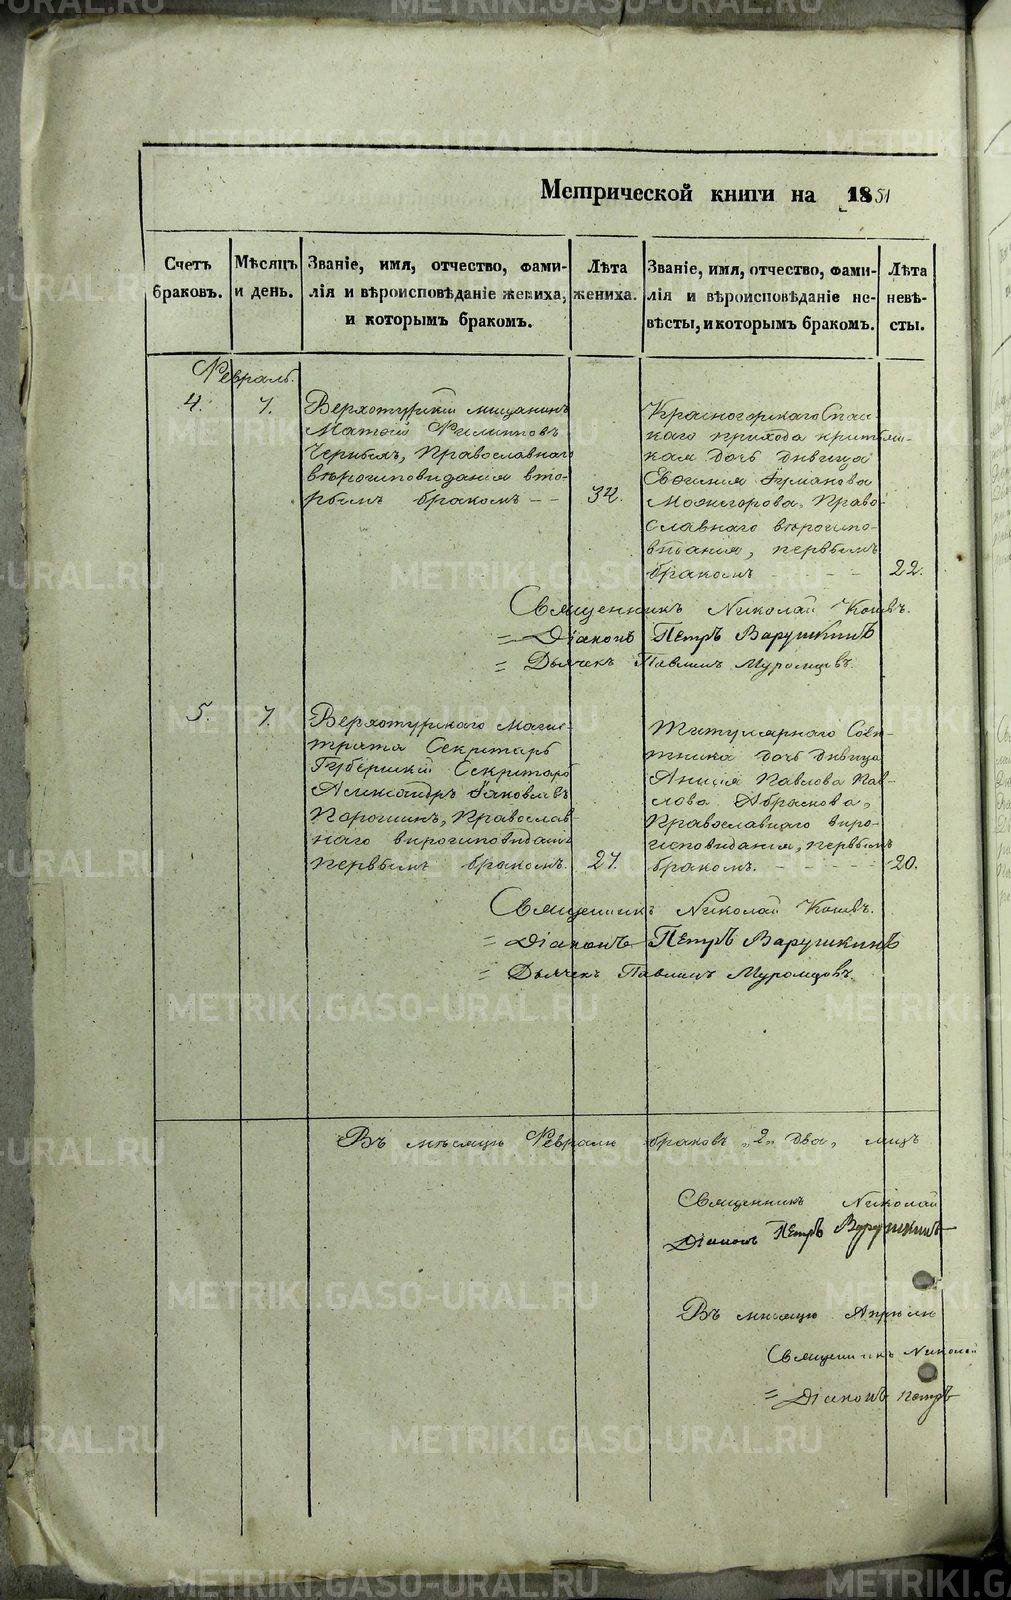 Метрической книги на 1851
Счетъ браковъ.
Мѣсяцъ и день.
Званіе, имя, отчество, фами-
лія и вѣроисповѣданіе жениха,
и которымъ бракомъ.
Лѣта
жениха.
Званіе, имя, отчество, фами-
лія и вѣроисповѣданіе не-
вѣсты, и которымъ бракомъ.
Лѣта
невѣ-
сты.
Февраль.
4.
7.
Верхотурскій мещанинъ
Матѳей Филипповъ
Черныхъ, Православнаго
вѣроисповеданія вто-
рымъ бракомъ - -
32.
Красногорскаго Спас-
каго прихода
дочь девица
Евгения
Православнаго вѣроиспо-
вѣданія, первымъ
бракомъ - - - -
22.
Священникъ Николай
= Діаконъ Петръ Варушкинъ
= Дьячекъ Павлинъ Муромцовъ.
5.
7.
Верхотурскаго Магис-
трата Секретарь
Губернский Секретарь
Александръ Яковлевъ
Порошинъ, Православ-
наго вероисповедания
первымъ бракомъ.
27.
Титулярнаго Совѣ-
тника дочь девица
Анисія Павлова
Православнаго веро-
исповедания, первымъ
бракомъ. - - - - -
20.
Священникъ Николай
= Діаконъ Петръ Варушкинъ
= Дьячекъ Павлинъ Муромцовъ.
Въ месяце Феврале браковъ „2„ два, лицъ
Священникъ Николай
Діаконъ Петръ Варушкинъ
Въ месяце Апреле
Священникъ Николай
= Діаконъ Петръ
METRIKI.GASO-URAL.RU